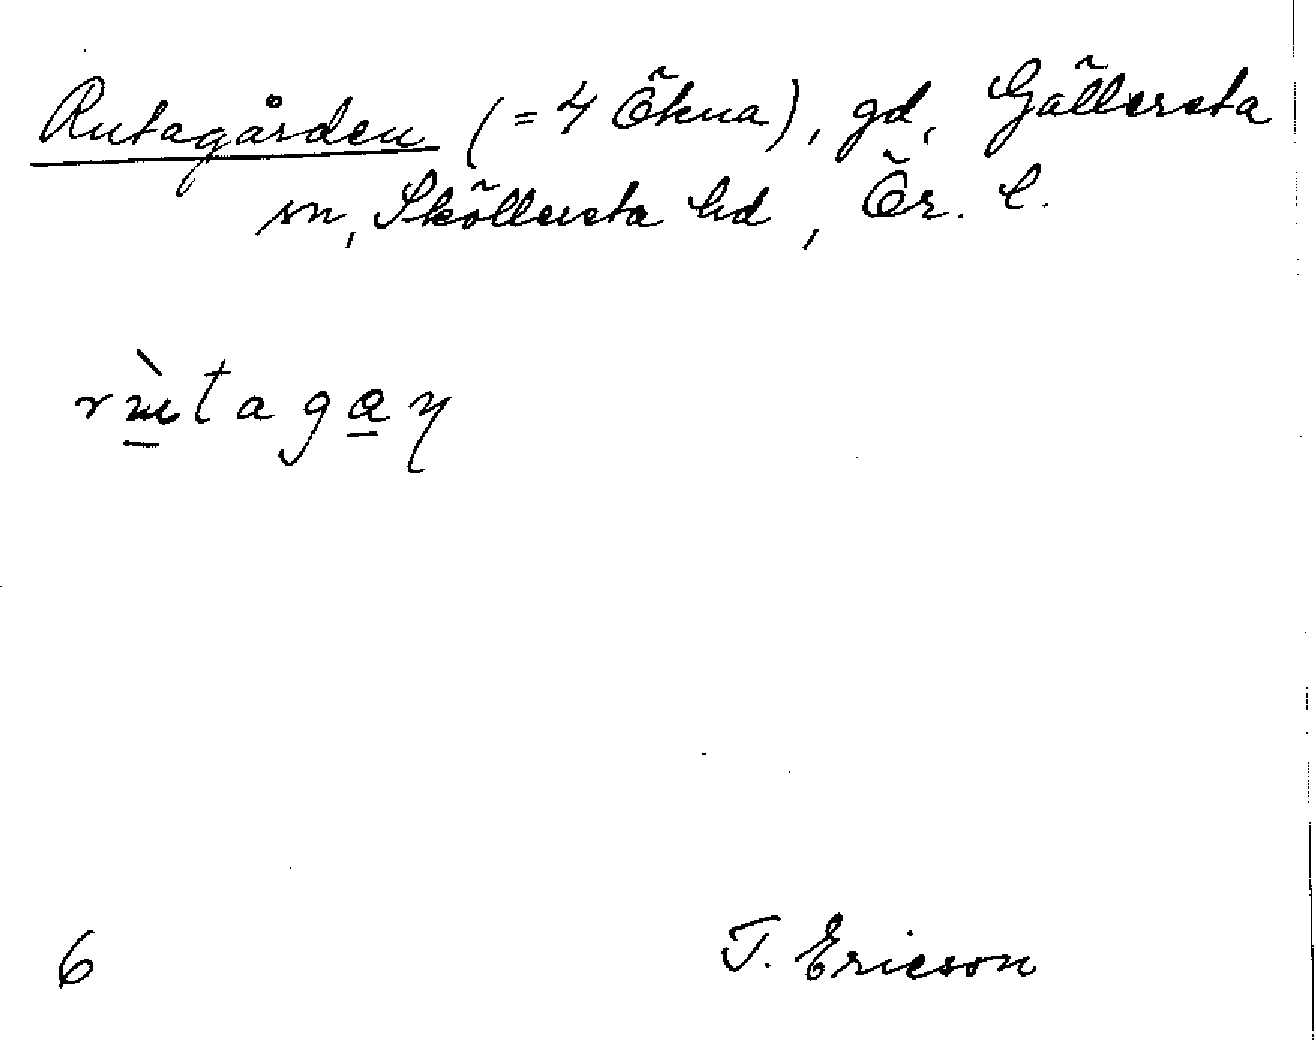 Rutagården (= 4 Ökna), gd, Gällersta
sn, Sköllersta hd, Ör. l.
rɯ̱̀taga̱ɳ
6
T. Ericson